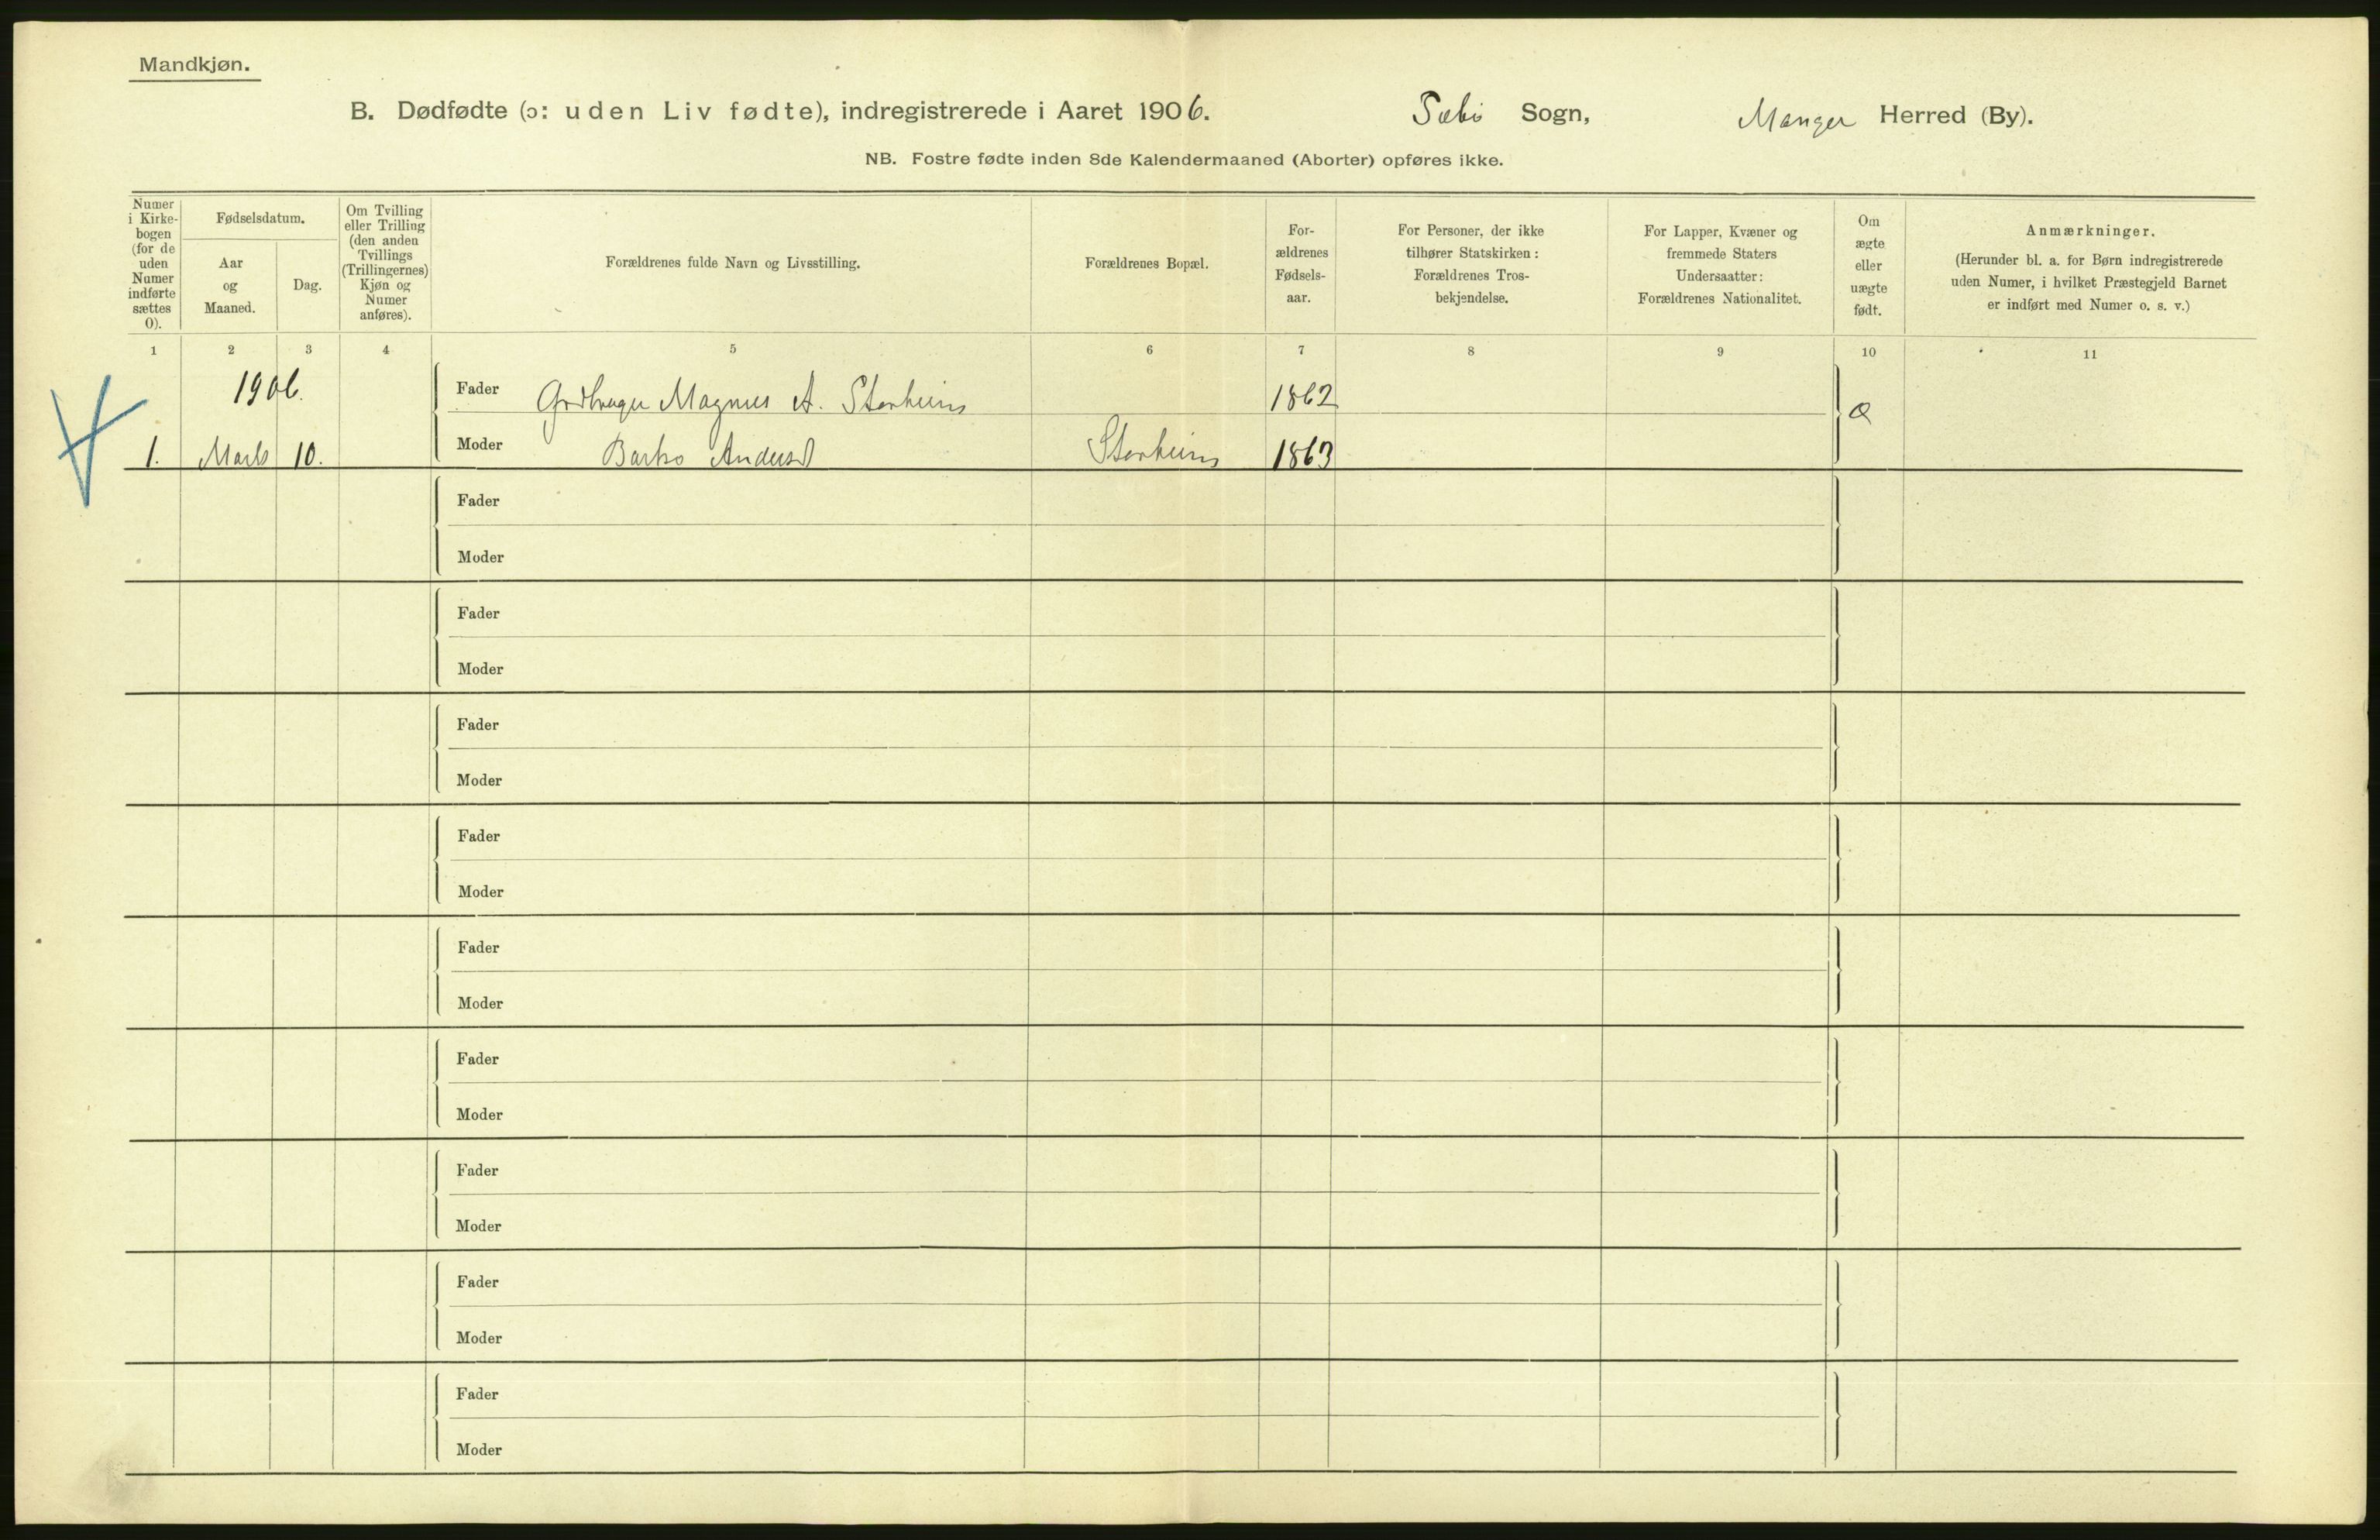 Mandkjøn.
B. Dødfødte (ɔ: uden Liv fødte), indregistrerede i Aaret 1906. Sæbø Sogn, Manger Herred (By).
NB. Fostre fødte inden 8de Kalendermaaned (Aborter) opføres ikke.
Numer i Kirkebogen (for de uden Numer indførte sættes 0).
Fødselsdatum.
Aar og Maaned.
Dag.
Om Tvilling eller Trilling (den anden Tvillings (Trillingernes) Kjøn og Numer anføres).
Forældrenes fulde Navn og Livsstilling.
Forældrenes Bopæl.
Forældrenes Fødselsaar.
For Personer, der ikke tilhører Statskirken: Forældrenes Trosbekjendelse.
For Lapper, Kvæner og fremmede Staters Undersaatter: Forældrenes Nationalitet.
Om ægte eller uægte født.
Anmærkninger.
(Herunder bl. a. for Børn indregistrerede uden Numer, i hvilket Præstegjeld Barnet er indført med Numer o. s. v.)
1 2 3 4 5 6 7 8 9 10 11
1906.
Fader Grdbruger Magnus A. Storheim 1862
1. Marts 10. Moder Andersd Storheim 1863
Fader
Moder
Fader
Moder
Fader
Moder
Fader
Moder
Fader
Moder
Fader
Moder
Fader
Moder
Fader
Moder
Fader
Moder